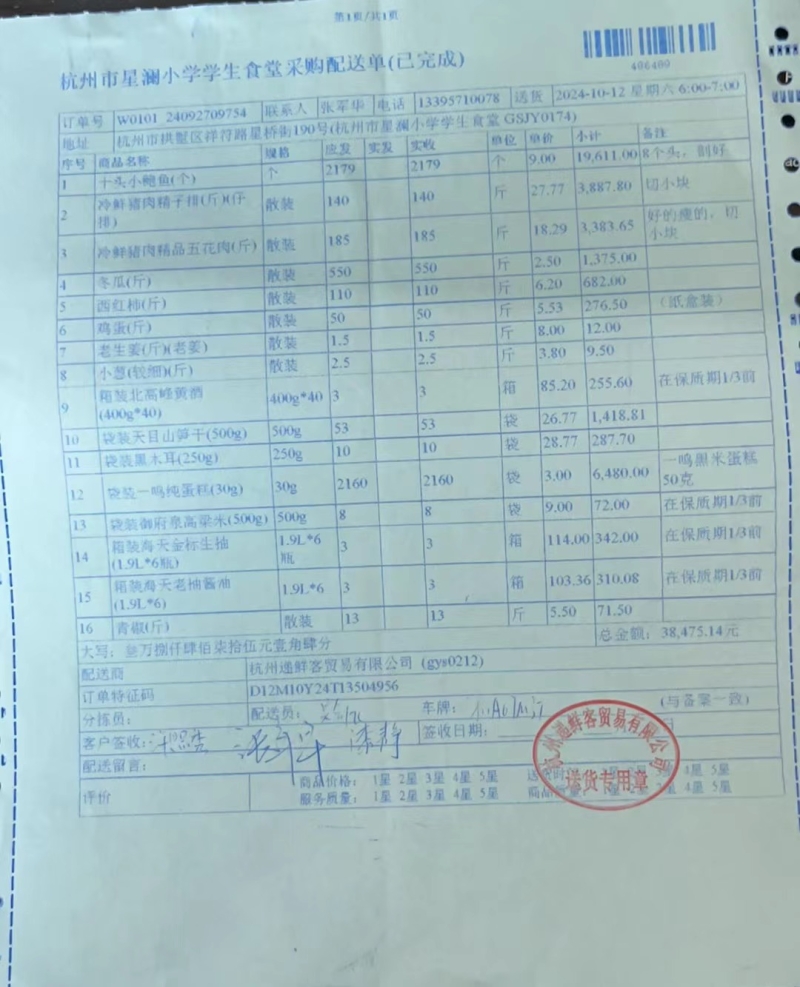 第1页/共1页
406409
杭州市星澜小学学生食堂采购配送单(已完成)
订单号 W0101_24092709754 联系人 张军华 电话 13395710078 送货 2024-10-12 星期六 6:00-7:00
地址 杭州市拱墅区祥符路星桥街190号(杭州市星澜小学学生食堂 GSJY0174)
序号 商品名称 规格 应发 实发 实收 单位 单价 小计 备注
1 十头小鲍鱼(个) 个 2179 2179 个 9.00 19,611.00 8个头，剖好
2 冷鲜猪肉精子排(斤)(仔排) 散装 140 140 斤 27.77 3,887.80 切小块
3 冷鲜猪肉精品五花肉(斤) 散装 185 185 斤 18.29 3,383.65 好的瘦的，切小块
4 冬瓜(斤) 散装 550 550 斤 2.50 1,375.00
5 西红柿(斤) 散装 110 110 斤 6.20 682.00
6 鸡蛋(斤) 散装 50 50 斤 5.53 276.50 （纸盒装）
7 老生姜(斤)(老姜) 散装 1.5 1.5 斤 8.00 12.00
8 小葱(较细)(斤) 散装 2.5 2.5 斤 3.80 9.50
9 箱装北高峰黄酒(400g*40) 400g*40 3 3 箱 85.20 255.60 在保质期1/3前
10 袋装天目山笋干(500g) 500g 53 53 袋 26.77 1,418.81
11 袋装黑木耳(250g) 250g 10 10 袋 28.77 287.70
12 袋装一鸣纯蛋糕(30g) 30g 2160 2160 袋 3.00 6,480.00 一鸣黑米蛋糕50克
13 袋装御府泉高粱米(500g) 500g 8 8 袋 9.00 72.00 在保质期1/3前
14 箱装海天金标生抽(1.9L*6瓶) 1.9L*6瓶 3 3 箱 114.00 342.00 在保质期1/3前
15 箱装海天老抽酱油(1.9L*6) 1.9L*6 3 3 箱 103.36 310.08 在保质期1/3前
16 青椒(斤) 散装 13 13 斤 5.50 71.50
大写：叁万捌仟肆佰柒拾伍元壹角肆分 总金额：38,475.14元
配送商 杭州递鲜客贸易有限公司 (gys0212)
订单特征码 D12M10Y24T13504956
分拣员： 配送员： 车牌： (与备案一致)
客户签收： 签收日期：
配送留言：
评价 商品价格： 1星 2星 3星 4星 5星 4星 5星
服务质量： 1星 2星 3星 4星 5星 4星 5星
杭州递鲜客贸易有限公司
送货专用章